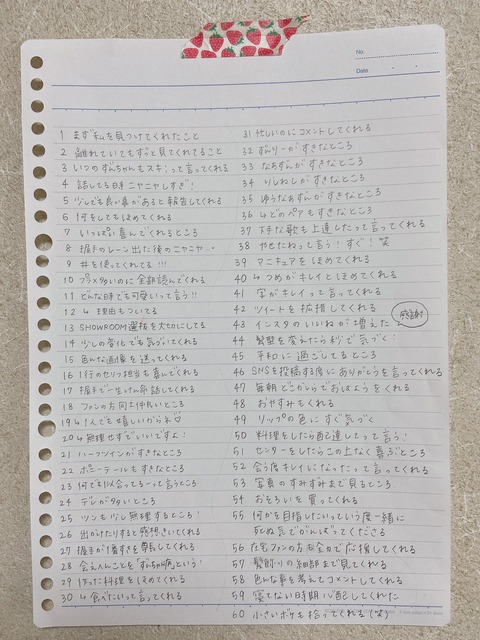 No.
Date
1 まず私を見つけてくれたこと
2 離れていてもずっと見てくれてること
3 いつのずんちゃんもスキ!って言ってくれる
4 話してる時ニヤニヤしすぎ!
5 少しでも良い事があると報告してくれる
6 何をしてもほめてくれる
7 いっぱい喜んでくれるところ
8 握手のレーン出た後のニヤニヤ‥
9 #を使ってくれてる!!!
10 プラメ多いのに全部読んでくれる
11 どんな時でも可愛いって言う!!
12 ↳ 理由もついてる
13 SHOWROOM選抜を大切にしてる
14 少しの変化でも気づいてくれる
15 色んな画像を送ってくれる
16 1行のセリフ担当も喜んでくれる
17 握手で一生けん命話してくれる
18 ファンの方同士仲良いところ
19 ↳1人でも嬉しいからネ♡
20 ↳無理せずでいいですよ!
21 ハーフツインがすきなところ
22 ポニーテールもすきなところ
23 何でも似合ってるーって言うところ
24 デレが多いところ
25 ツンも少し無理するところ!
26 出がたりすると感想きいてくれる
27 握手が1番すきを尊重してくれる
28 会えんへんことを"ずん不足病"という!
29 作った料理をほめてくれる
30 ↳ 食べたいって言ってくれる
31 忙しいのにコメントしてくれる
32 ずんりーがすきなところ
33 なぁずんがすきなところ
34 りしれしがすきなところ
35 ゆうなぁずんがすきなところ
36 ↳どのペアもすきなところ
37 下手な歌も上達したって言ってくれる
38 やせたねって言う!すぐ!笑
39 マニキュアをほめてくれる
40 ↳つめがキレイとほめてくれる
41 字がキレイって言ってくれる
42 ツイートを拡散してくれる
43 インスタのいいねが増えた
感謝
44 髪型を変えたら秒で気づく!
45 平和に過ごしてるところ
46 SNSを投稿する度にありがとうを言ってくれる
47 毎朝どこからでもおはようをくれる
48 おやすみもくれる
49 リップの色にすぐ気づく
50 料理をしたら上達してって言う!
51 センターをしたらこの上なく喜ぶところ
52 会う度キレイになったって言ってくれる
53 写真のすみずみまで見るところ
54 おそろいを買ってくれる
55 何かを目指したいっていう度一緒に
死ぬ気でがんばってくださる
56 在宅ファンの方も全力で応援してくれる
57 髪飾りの細部まで見てくれる
58 色んな事を考えてコメントしてくれる
59 寝てない時期心配してくれた
60 小さいボケも拾ってくれる(笑)